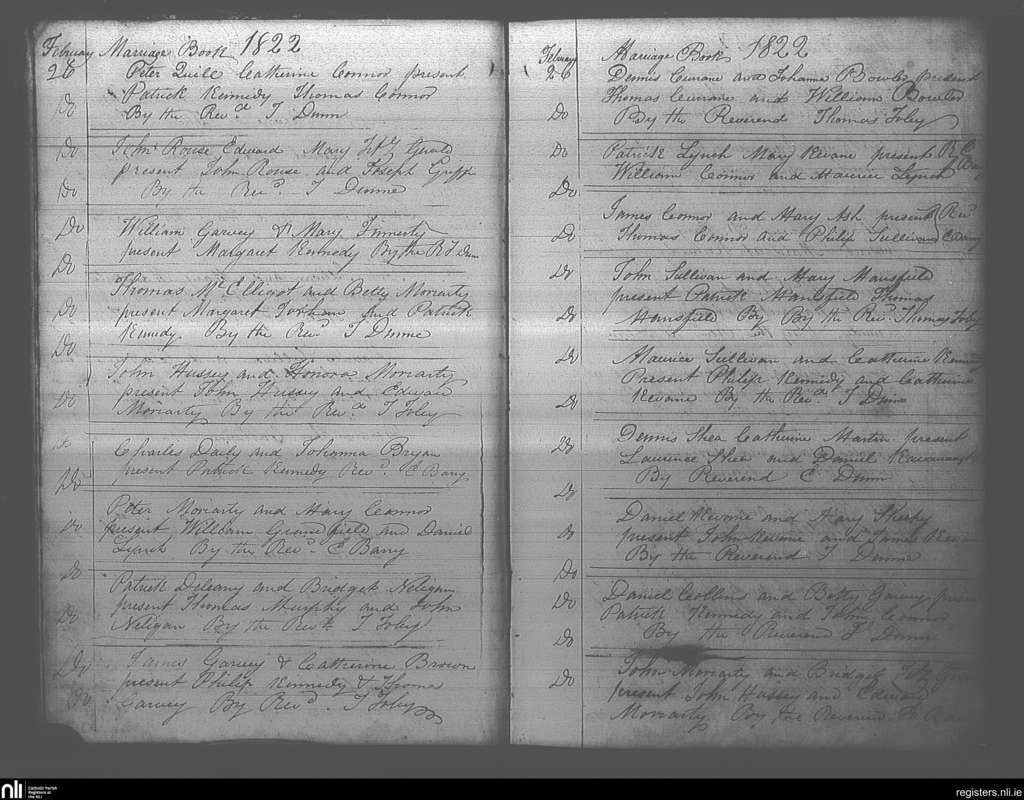 February Marriage Book 1822
26 Peter Quill Catherine Connor present
Patrick Kennedy Thomas Connor
Do By the Revd. T Dunn
Do John Rouse Edward Mary
present John Rouse and Joseph Griffin
Do By the Revd. T Dunne
Do William Garvey & Mary Finnerty
present Margaret Kennedy By the R T Dun
Do
Thomas McElligot and Betty Moriarty
Do present Margaret and Patrick
Kennedy By the Revd. T Dunne
Do
John Hussey and Honora Moriarty
present John Hussey and Edward
Do Moriarty By the Revd. T Foley
Charles Daily and Johanna Bryan
present Patrick Kennedy Revd. C Barry
Do
Peter Moriarty and Mary Connor
Do present William and Daniel
Lynch By the Revd. C Barry
Do
Patrick Deleany and Bridget Neligan
present Thomas Murphy and John
Do Neligan By the Revd. T Foley
Do James Garvey & Catherine Brown
present Philip Kennedy & Thomas
Do Garvey By Revd. T Foley
February Marriage Book 1822
26 Dennis Currane and Johanna Bowler present
Thomas Currane and William Bowler
Do By the Reverend Thomas Foley
Do Patrick Lynch Mary Kevane present R C
William Connor and Maurice Lynch
Do
James Connor and Mary Ash present Revd
Do Thomas Connor and Philip Sullivan C Barry
Do John Sullivan and Mary Mansfield
present Patrick Mansfield Thomas
Do Mansfield By By the Revd. Thomas Foley
Do Maurice Sullivan and Catherine
Present Philip Kennedy and Catherine
Do Kevane By the Revd. T Dunn
Dennis Shea Catherine Martin present
Do Laurence Shea and Daniel Kavanaugh
By Reverend C Dunn
Do
Daniel Kevane and Mary Sheehy
Do present John Kevane and James
By the Reverend T Dunne
Do
Daniel Collins and Betty Garvey present
Do Patrick Kennedy and John Connor
Do By the Reverend T Dunne
John Moriarty and Bridget
Do present John Hussey and Edward
Moriarty By the Reverend
nli Catholic Parish
Registers at
the NLI
registers.nli.ie